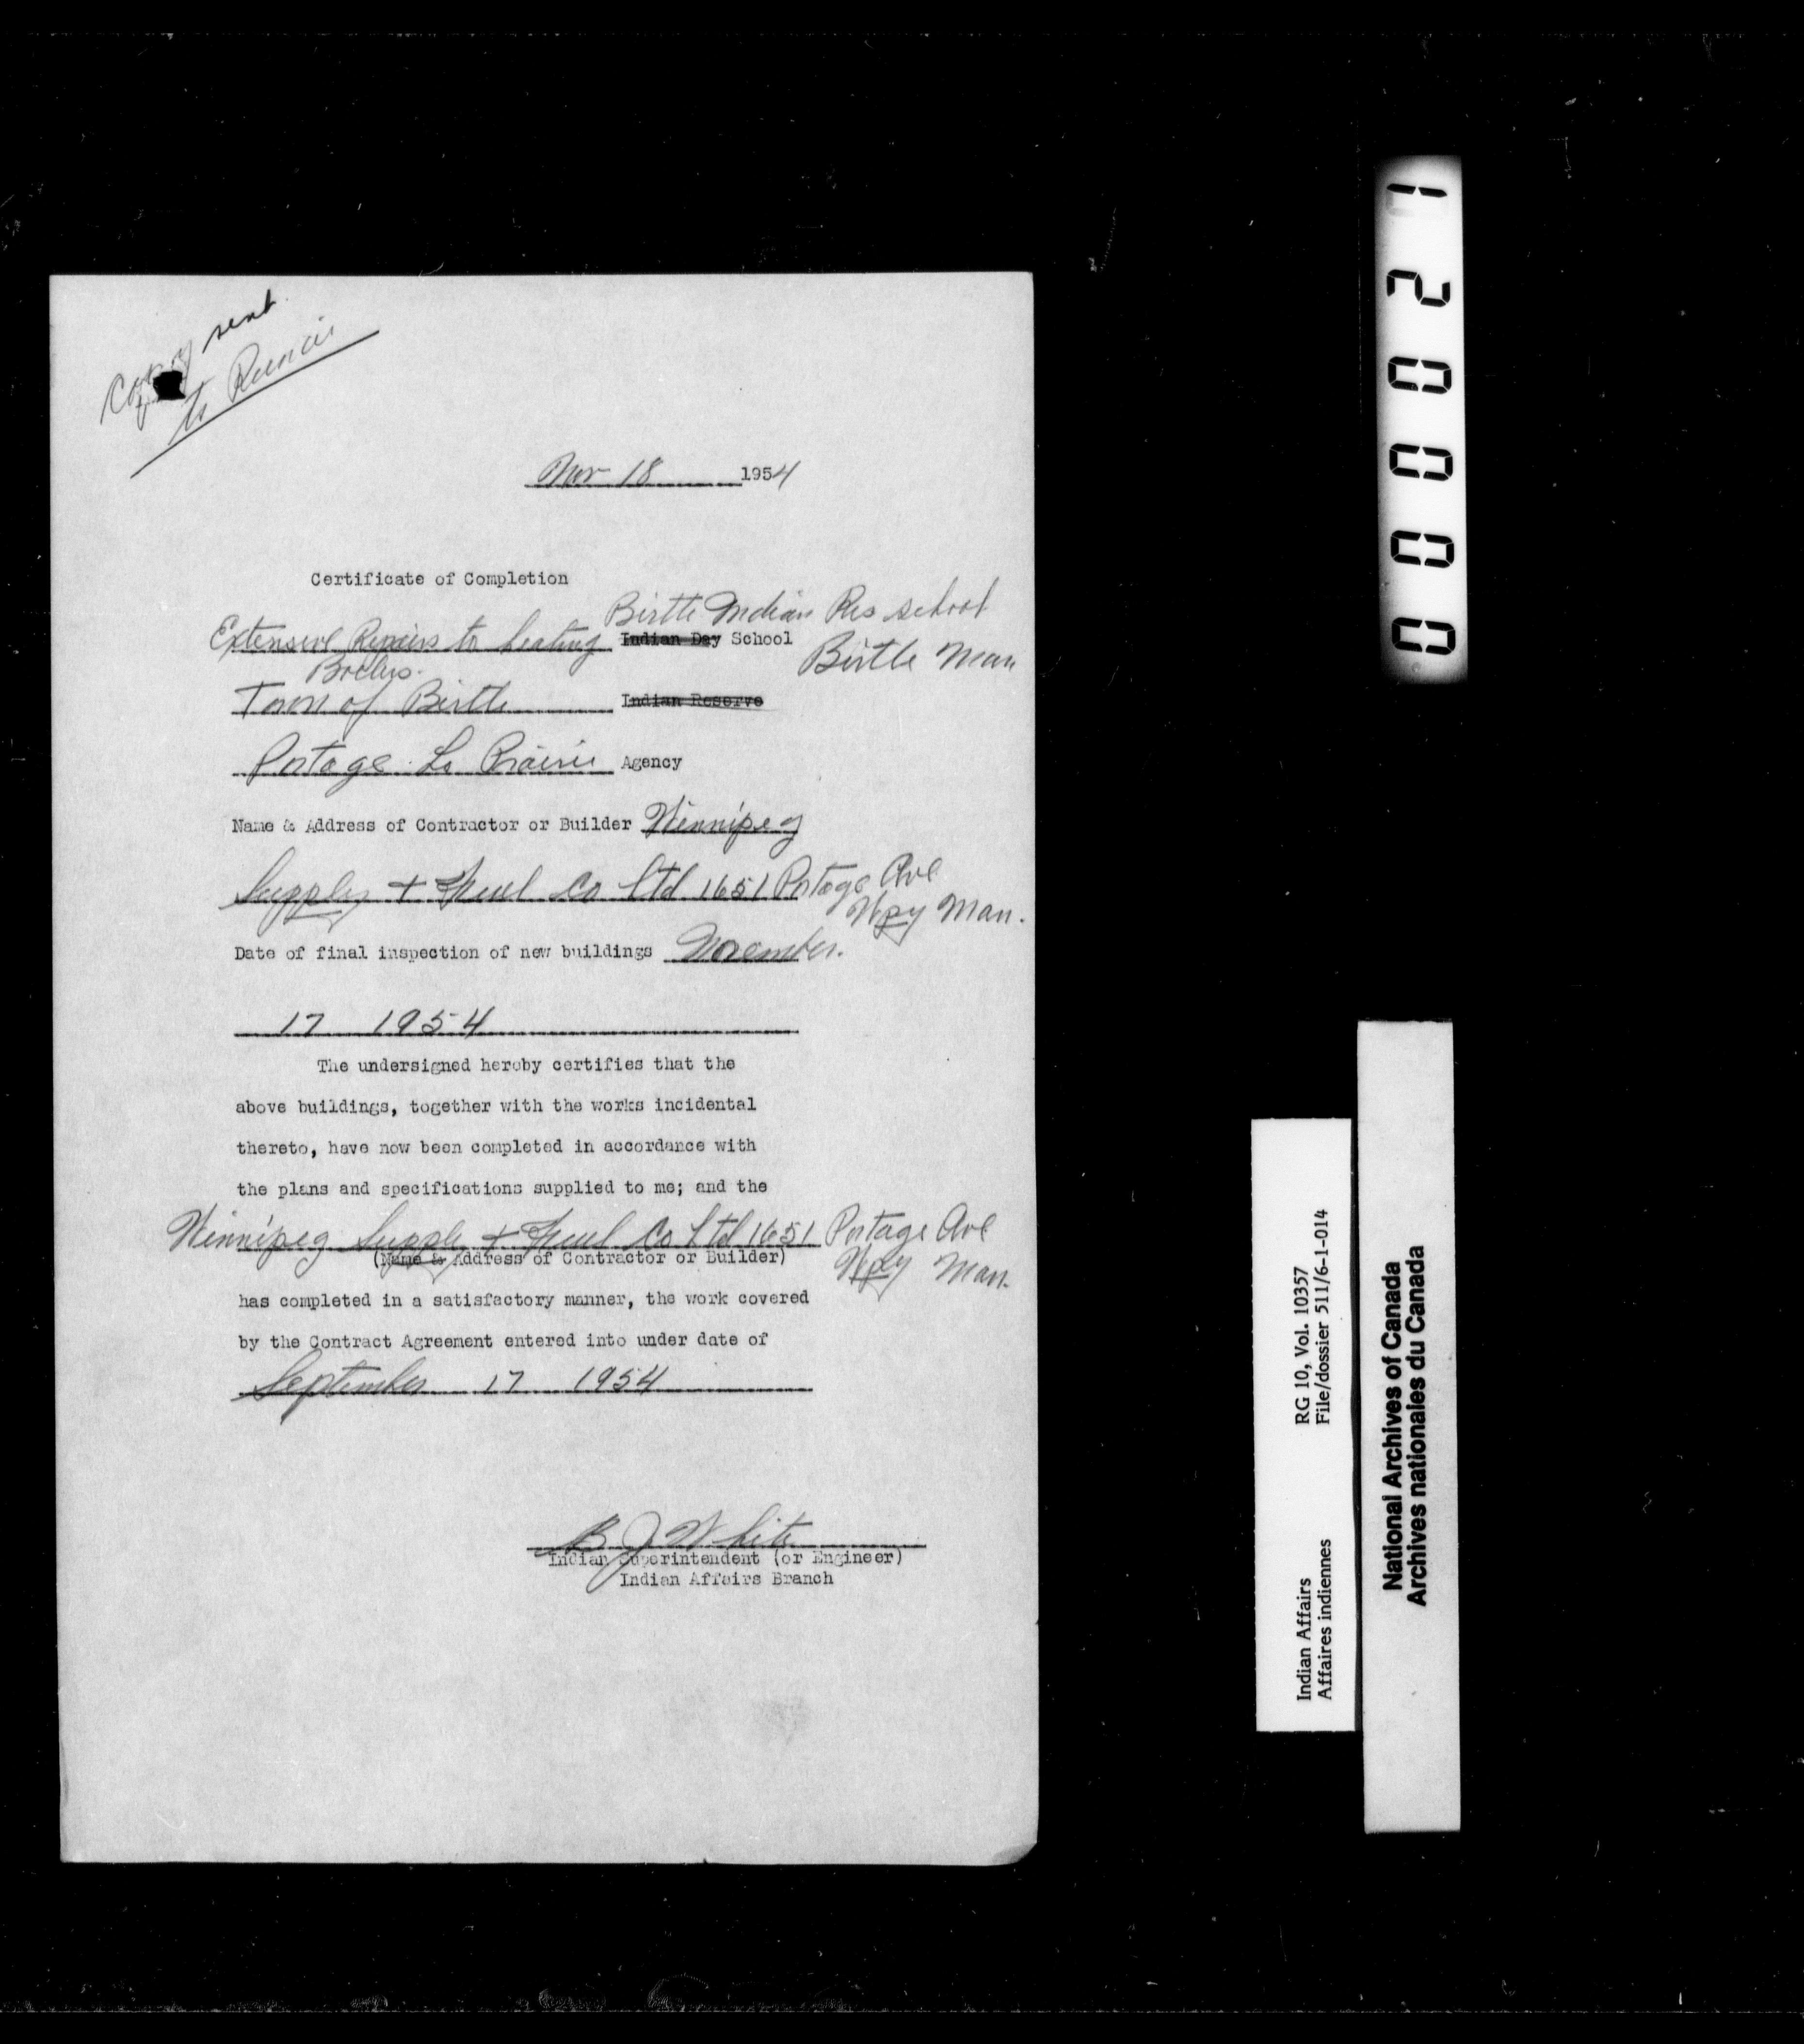 copy sent
to Runcie
Nov 18 1954
Certificate of Completion
Birtle Indian Res school
Extensive Repairs to heating Indian Day School
Boilers. Birtle Man
Town of Birtle Indian Reserve
Portage La Prairie Agency
Name & Address of Contractor or Builder Winnipeg
Supply + Fuel Co Ltd 1651 Portage Ave
Wpg Man.
Date of final inspection of new buildings November.
17 1954
The undersigned hereby certifies that the
above buildings, together with the works incidental
thereto, have now been completed in accordance with
the plans and specifications supplied to me; and the
Winnipeg Supply + Fuel Co Ltd 1651 Portage Ave
(Name & Address of Contractor or Builder) Wpg Man.
has completed in a satisfactory manner, the work covered
by the Contract Agreement entered into under date of
September 17 1954
B J White
Indian Superintendent (or Engineer)
Indian Affairs Branch
000021
Indian Affairs RG 10, Vol. 10357
Affaires indiennes File/dossier 511/6-1-014
National Archives of Canada
Archives nationales du Canada